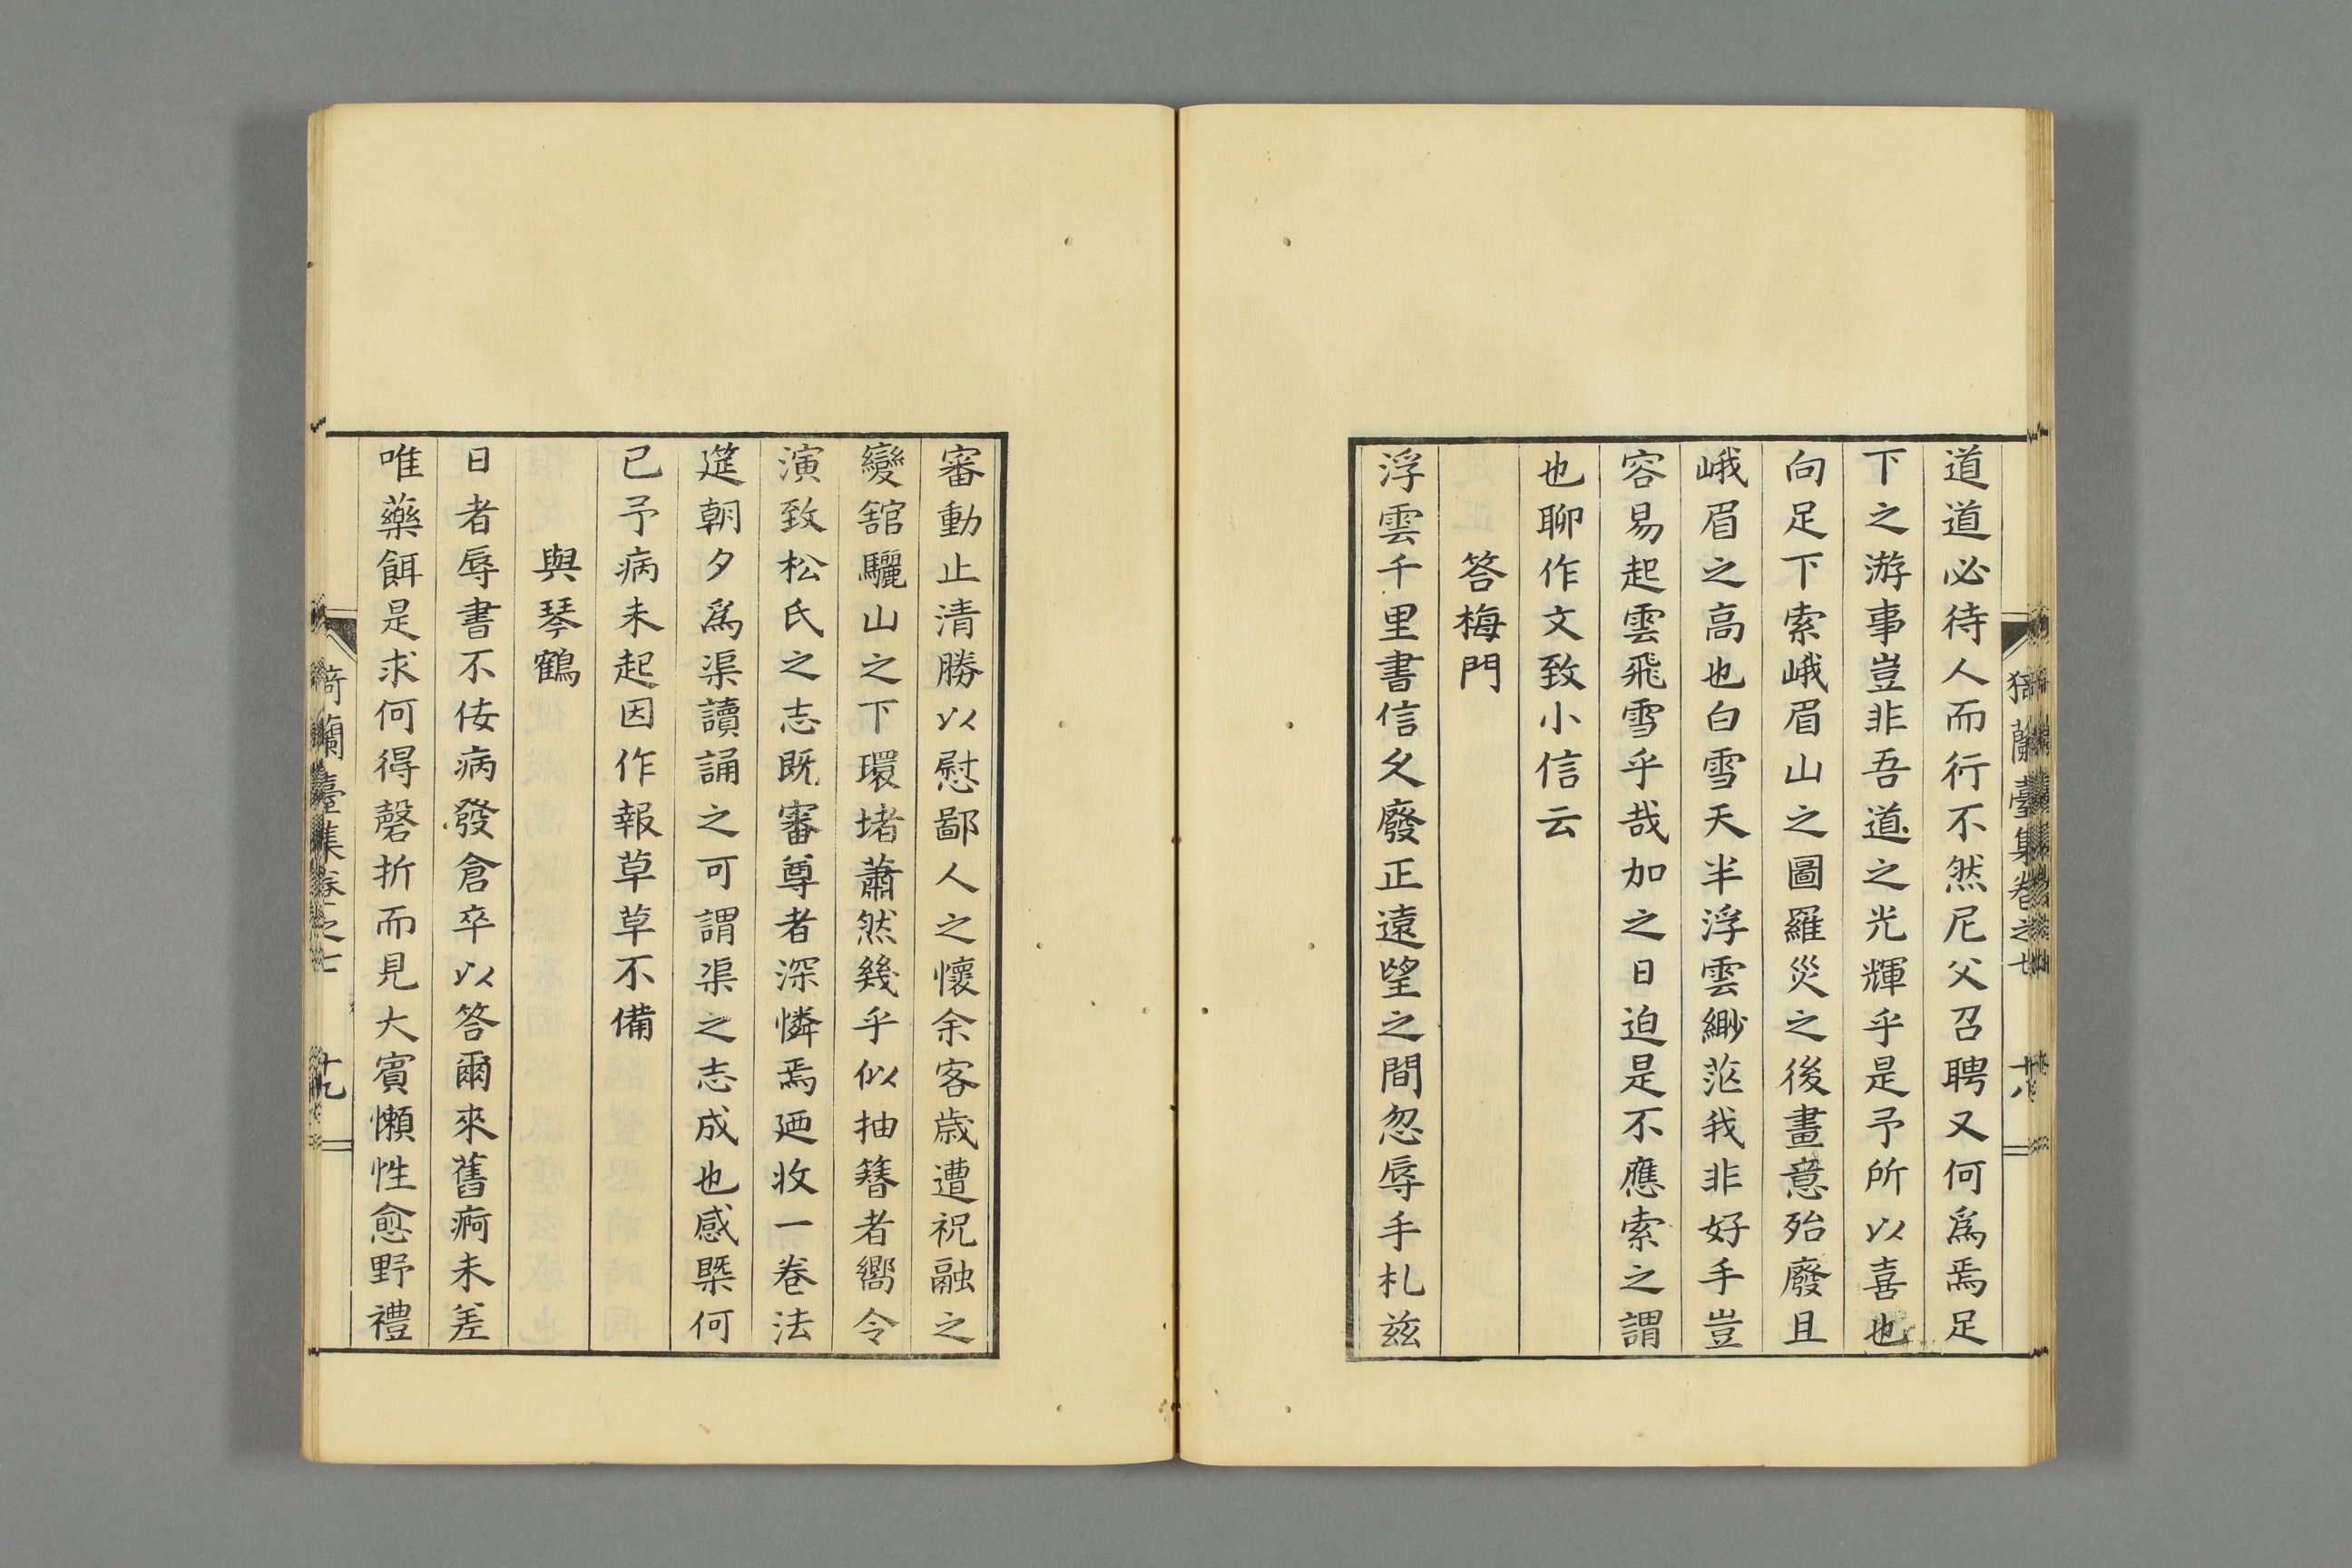 道道必待人而行不然尼父召聘又何爲焉足
下之游事豈非吾道之光輝乎是予所以喜也
向足下索峨眉山之圖羅災之後畫意殆廢且
峨眉之高也白雪天半浮雲緲茫我非好手豈
容易起雲飛雪乎哉加之日迫是不應索之謂
也聊作文致小信云
答梅門
浮雲千里書信久廢正遠望之間忽辱手札兹
審動止清勝以慰鄙人之懷余客歳遭祝融之
變舘驪山之下環堵蕭然幾乎似抽簪者嚮令
演致松氏之志既審尊者深憐焉廼收一卷法
筵朝夕爲渠讀誦之可謂渠之志成也感槩何
已予病未起因作報草草不備
與琴鶴
日者辱書不佞病發倉卒以答爾來舊痾未差
唯藥餌是求何得磬折而見大賓懶性愈野禮
猗蘭臺集卷之七 十八
猗蘭臺集卷之七 十九